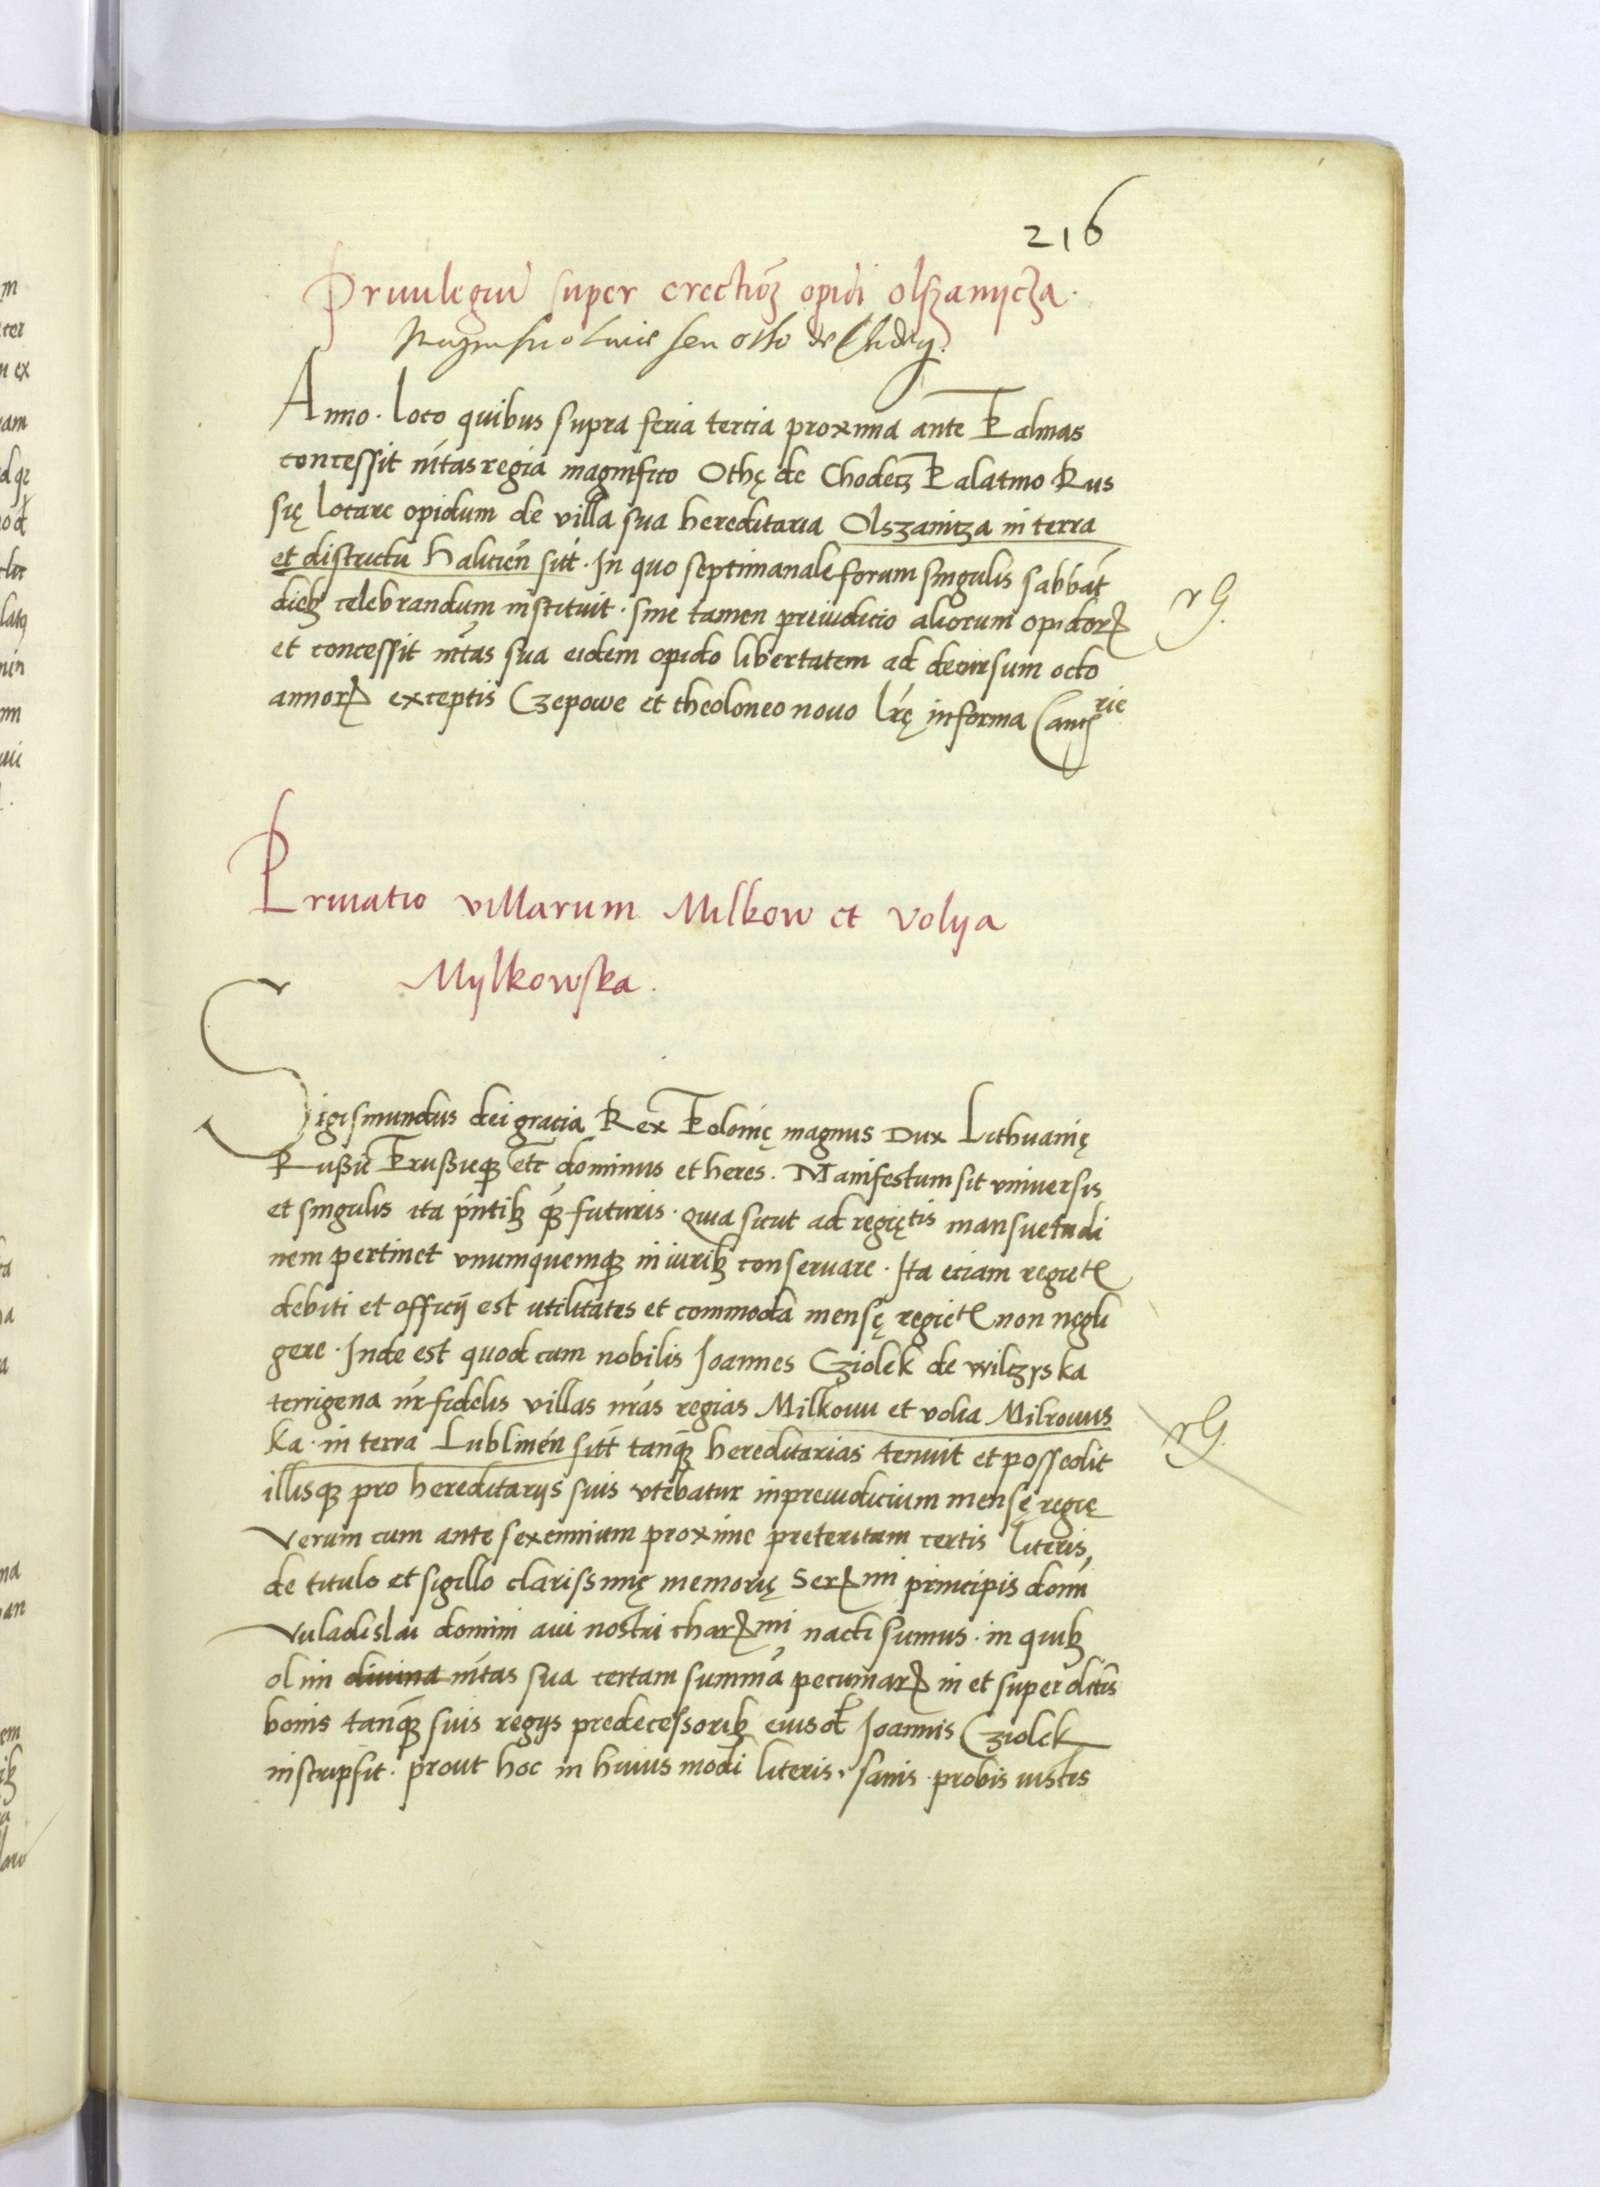 216
Priuilegiũ super erectiõẽ opidi olszanijcza.
Magnifico seu otto de
Anno. loco quibus supra feria tercia proxima ante Palmas
concessit mtas regia magnifico Othę de Chodecz Palatino Rus
się locare opidum de villa sua hereditaria Olszanicza in terra
et districtu Halicień sit̃. In quo septimanale forum singulis sabbat̃
dieb celebrandum instituit. sine tamen preiudicio aliorum opidorꝝ
et concessit mtas sua eidem opido libertatem ad decursum octo
annorꝝ exceptis Czepowe et theoloneo nouo lr̃ę in forma Cancrie
Priuatio villarum Milkow et Volija
Mylkowska.
Sigismundus dei gracia Rex Polonię magnus Dux Lithuanię
Russię Prussieqꝫ etc dominus et heres. Manifestum sit vniuersis
et singulis ita pñtibꝫ qꝫ futuris. Quia sicut ad regiętis mansuetudi
nem pertinet vnumquemqꝫ in iuribꝫ conseruare. Ita eciam regietꝭ
debiti et officij est utilitates et commoda mensę regietꝭ non negli
gere. Inde est quod cum nobilis Joannes Cziolek de wilczyska
terrigena nr̃ fidelis villas nr̃as regias Milkouu et volia Milkouus
ka. in terra Lublineń sitt̃ tanqꝫ hereditarias tenuit et possedit
illisqꝫ pro hereditarijs suis vtebatur in preiudicium mensę regię
Verum cum ante sexennium proxime preteritum certis literis,
de titulo et sigillo clarissimę memorię Serꝝmi principis domi
Vuladislai domini aui nostri charꝝmi nacti sumus. in quibꝫ
olim diuina mtas sua certam summã pecuniarꝝ in et super dictis
bonis tanqꝫ suis regijs predecessoribꝫ eiusd Joannis Cziolek
inscripsit. prout hoc in huius modi literis. sanis. probis iustis